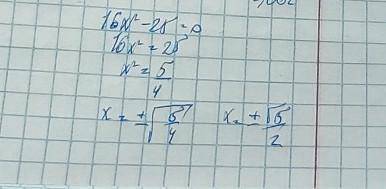 16x² - 25 = 0
16x² = 25
x² = 5/4
x = ±√(5/4) x = ±√5/2